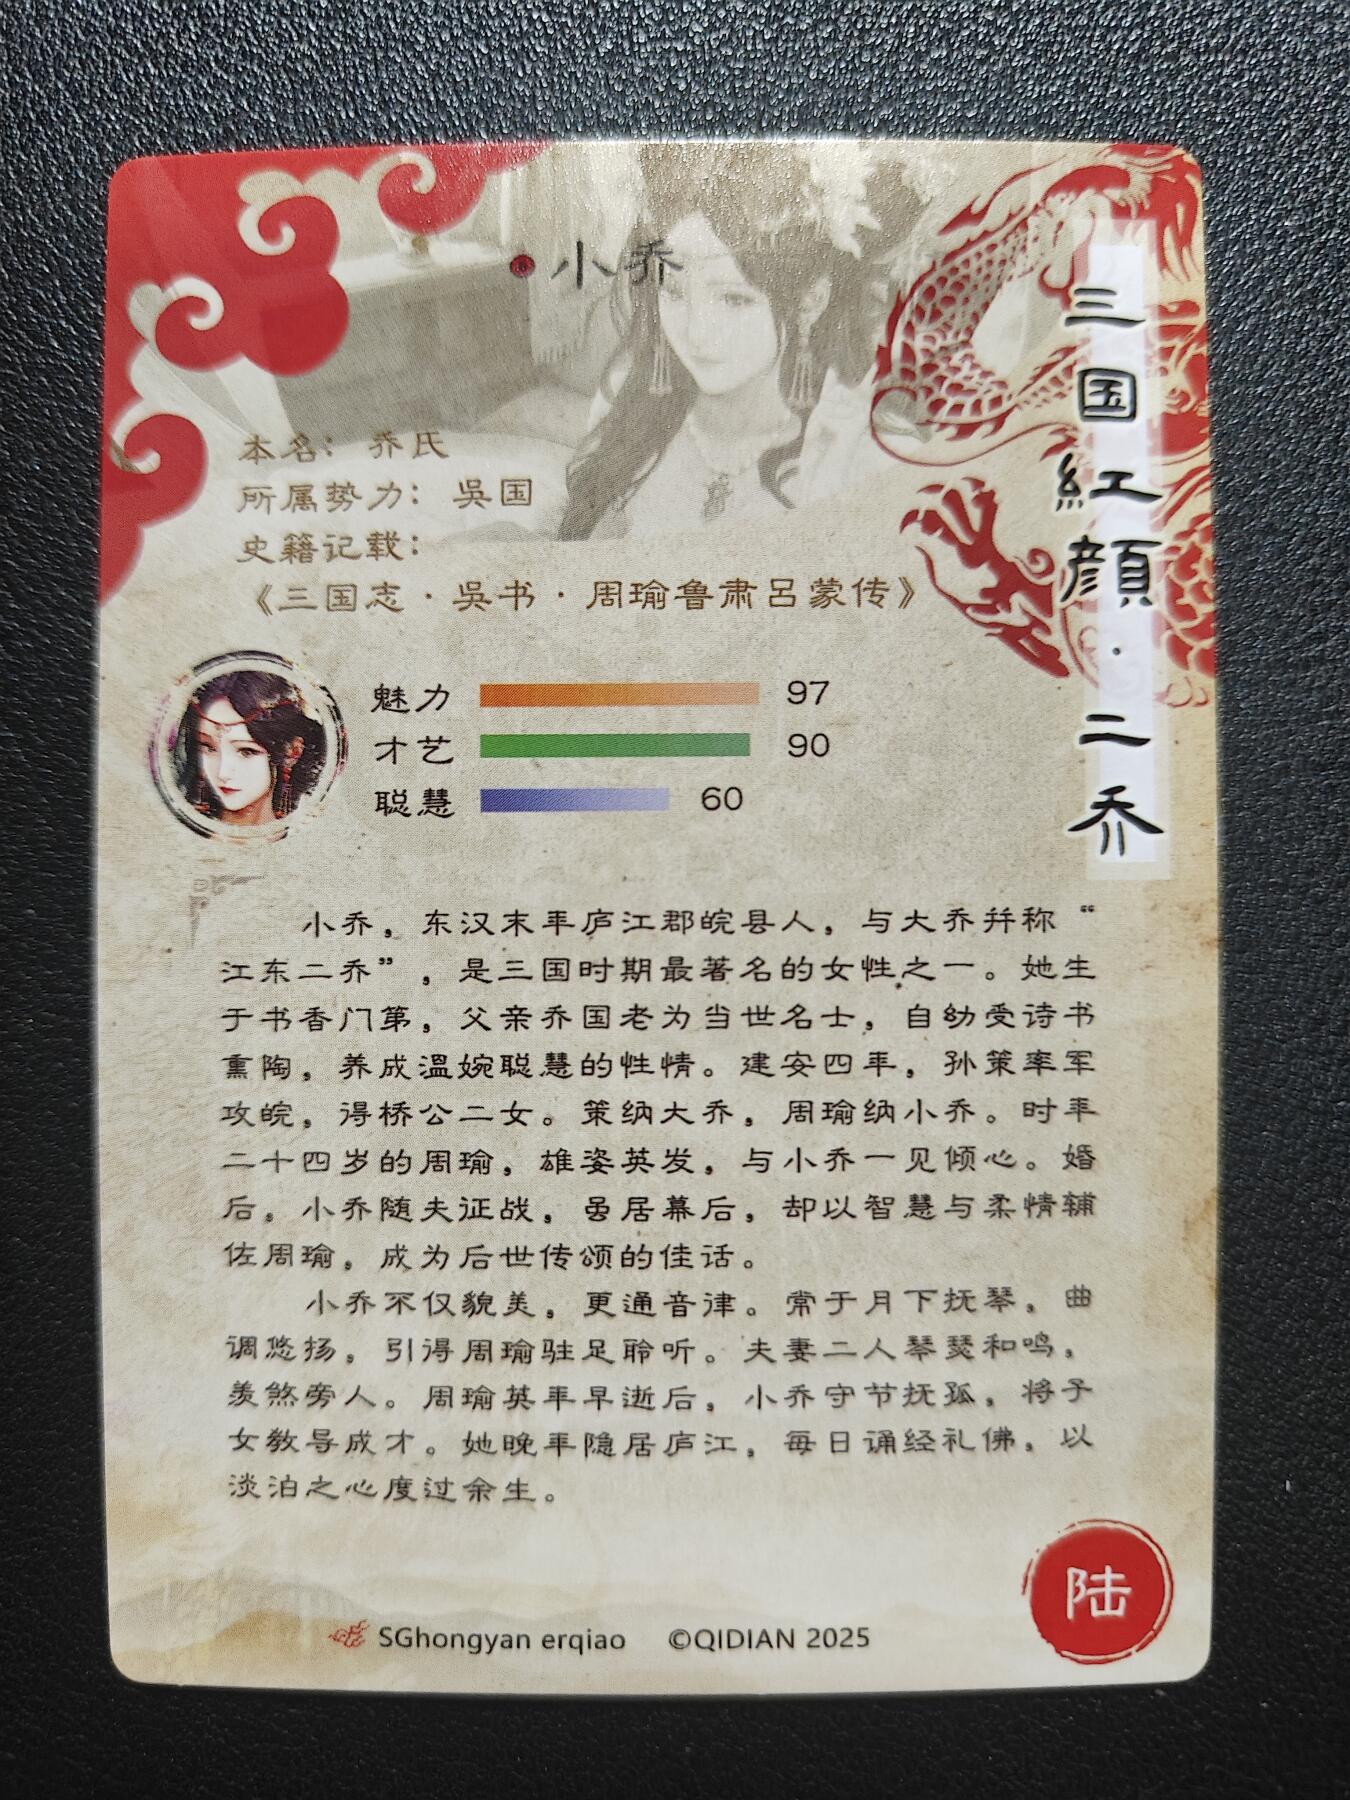 小乔
三国紅顔·二乔
本名：乔氏
所属势力：吳国
史籍记载：
《三国志·吳书·周瑜鲁肃吕蒙传》
魅力 97
才艺 90
聪慧 60
小乔，东汉末年庐江郡皖县人，与大乔并称“
江东二乔”，是三国时期最著名的女性之一。她生
于书香门第，父亲乔国老为当世名士，自幼受诗书
熏陶，养成温婉聪慧的性情。建安四年，孙策率军
攻皖，得桥公二女。策纳大乔，周瑜纳小乔。时年
二十四岁的周瑜，雄姿英发，与小乔一见倾心。婚
后，小乔随夫征战，虽居幕后，却以智慧与柔情辅
佐周瑜，成为后世传颂的佳话。
小乔不仅貌美，更通音律。常于月下抚琴，曲
调悠扬，引得周瑜驻足聆听。夫妻二人琴瑟和鸣，
羡煞旁人。周瑜英年早逝后，小乔守节抚孤，将子
女教导成才。她晚年隐居庐江，每日诵经礼佛，以
淡泊之心度过余生。
陆
SGhongyan erqiao ©QIDIAN 2025